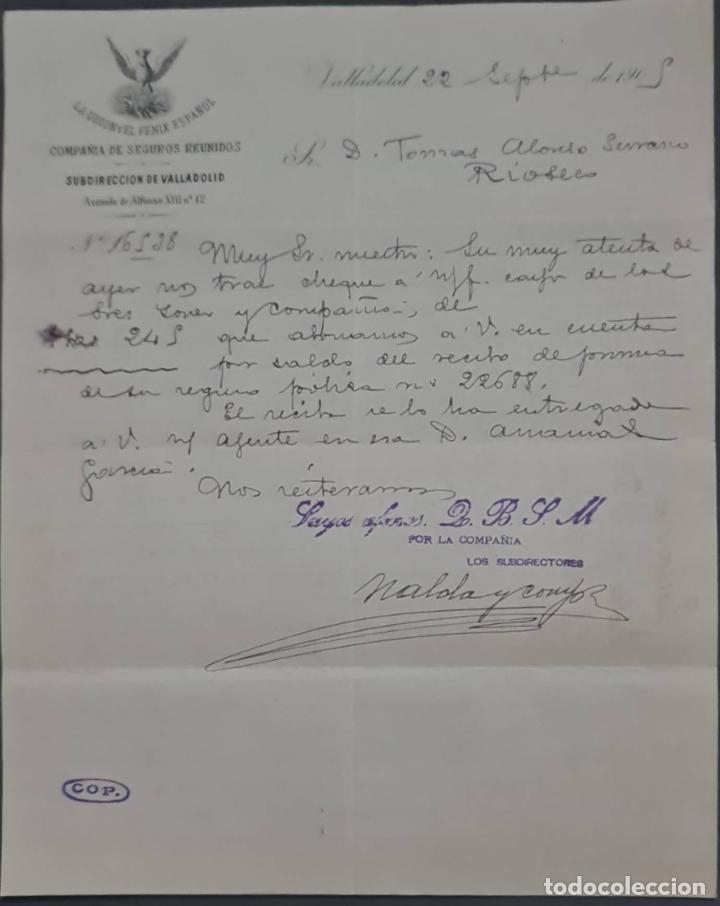 LA UNION Y EL FENIX ESPAÑOL
COMPAÑIA DE SEGUROS REUNIDOS
SUBDIRECCION DE VALLADOLID
Avenida de Alfonso XIII nº 12
Valladolid 22 Septe de 1915
Sr. D. Tomas Alonso Serrano
Rioseco
Nº 16528
Muy Sr. nuestro: Su muy atenta de
ayer nos trae cheque a n/f. de los
Sres y Compañia, de
Ptas 245 que abonamos a V. en cuenta
por saldo del recibo de prima
de su seguro poliza nº 22688.
El recibo se lo ha entregado
a V. n/ agente en esa D.
Garcia.
Nos reiteramos
Suyos afmos. Q. B. S. M
POR LA COMPAÑIA
LOS SUBDIRECTORES
Nalda y comp
COP.
todocoleccion
todocoleccion.net